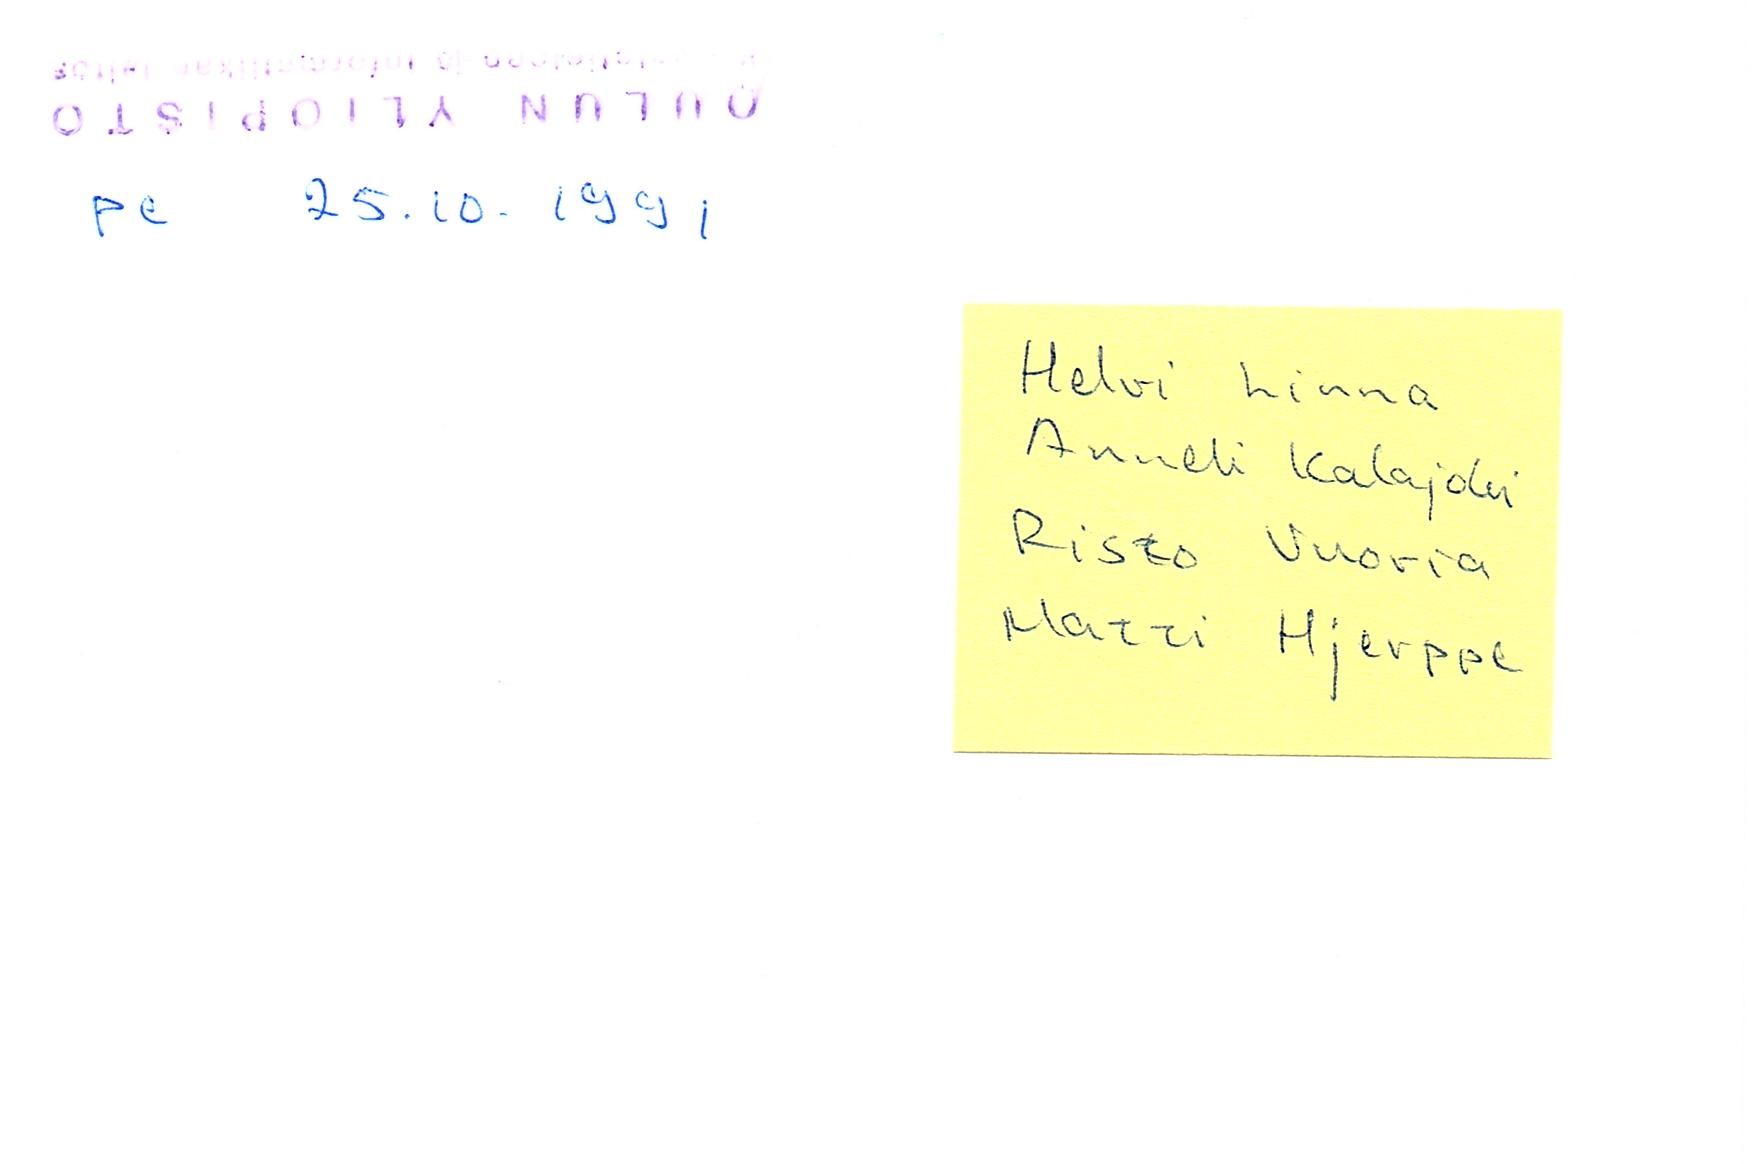 OULUN YLIOPISTO
ja informatiikan laitos
pe 25.10.1991
Helvi Linna
Anneli Kalajoki
Risto Vuoria
Matti Hjerppe